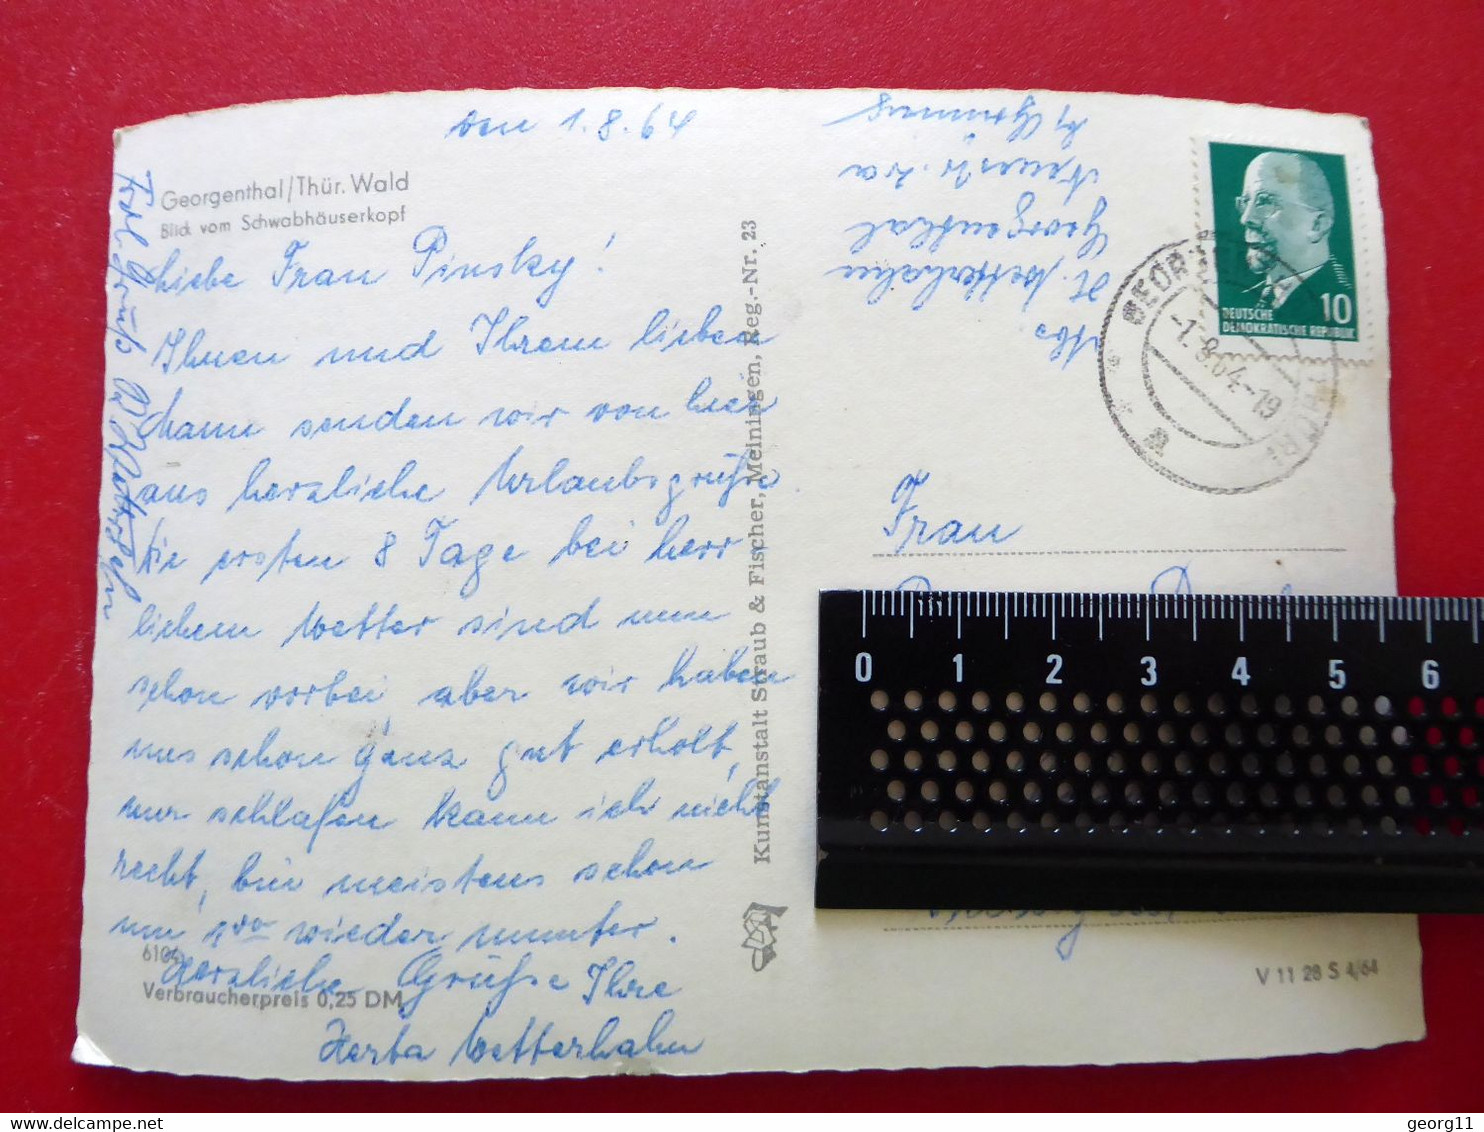 den 1.8.64
Georgenthal/Thür. Wald
Blick vom Schwabhäuserkopf
Liebe Frau Pinsky!
Ihnen und Ihrem lieben
Mann senden wir von hier
aus herzliche Urlaubsgrüße.
Die ersten 8 Tage bei herr
lichem Wetter sind nun
schon vorbei aber wir haben
uns schon ganz gut erholt,
nur schlafen kann ich nicht
recht, bin meistens schon
um wieder munter.
Herzliche Grüße Ihre
Herta Wetterhahn
6104
Verbraucherpreis 0,25 DM
Kunstanstalt Straub & Fischer, Meiningen, Reg.-Nr. 23
Abs.
H. Wetterhahn
Georgenthal
DEUTSCHE
DEMOKRATISCHE REPUBLIK
10
-1.8.64-19
Frau
0 1 2 3 4 5 6
V 11 28 S 4/64
georg11